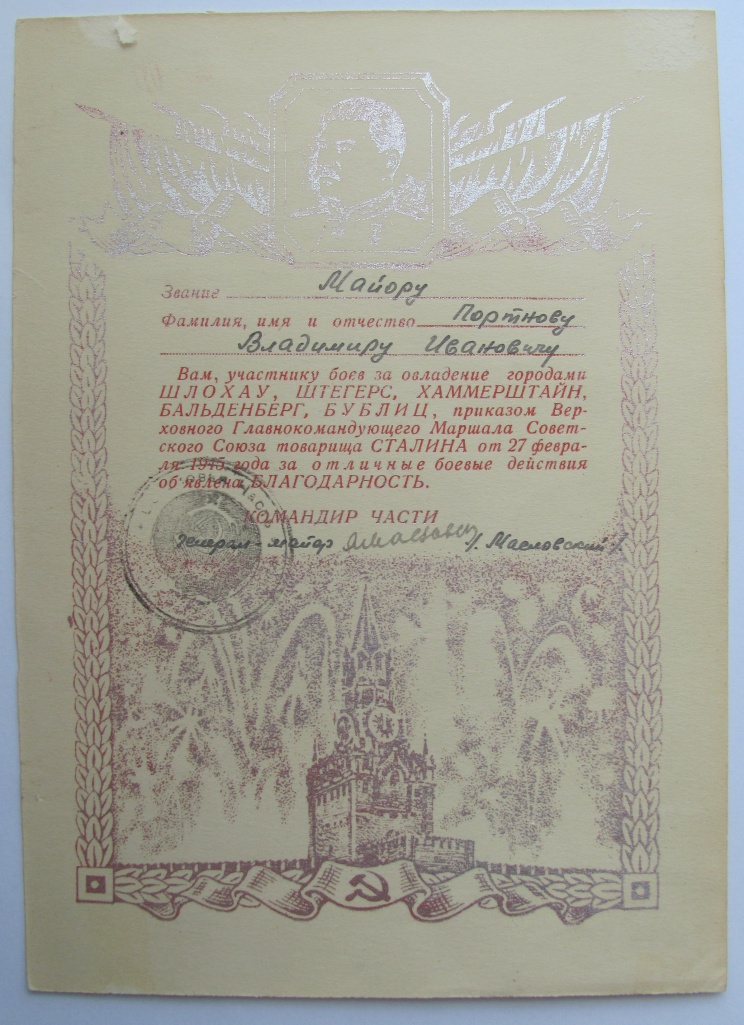 Звание Майору
Фамилия, имя и отчество Портнову
Владимиру Ивановичу
Вам, участнику боев за овладение городами
ШЛОХАУ, ШТЕГЕРС, ХАММЕРШТАЙН,
БАЛЬДЕНБЕРГ, БУБЛИЦ, приказом Вер-
ховного Главнокомандующего Маршала Совет-
ского Союза товарища СТАЛИНА от 27 февра-
ля 1945 года за отличные боевые действия
об‘явлена БЛАГОДАРНОСТЬ.
КОМАНДИР ЧАСТИ
Генерал-майор /Масловский/.